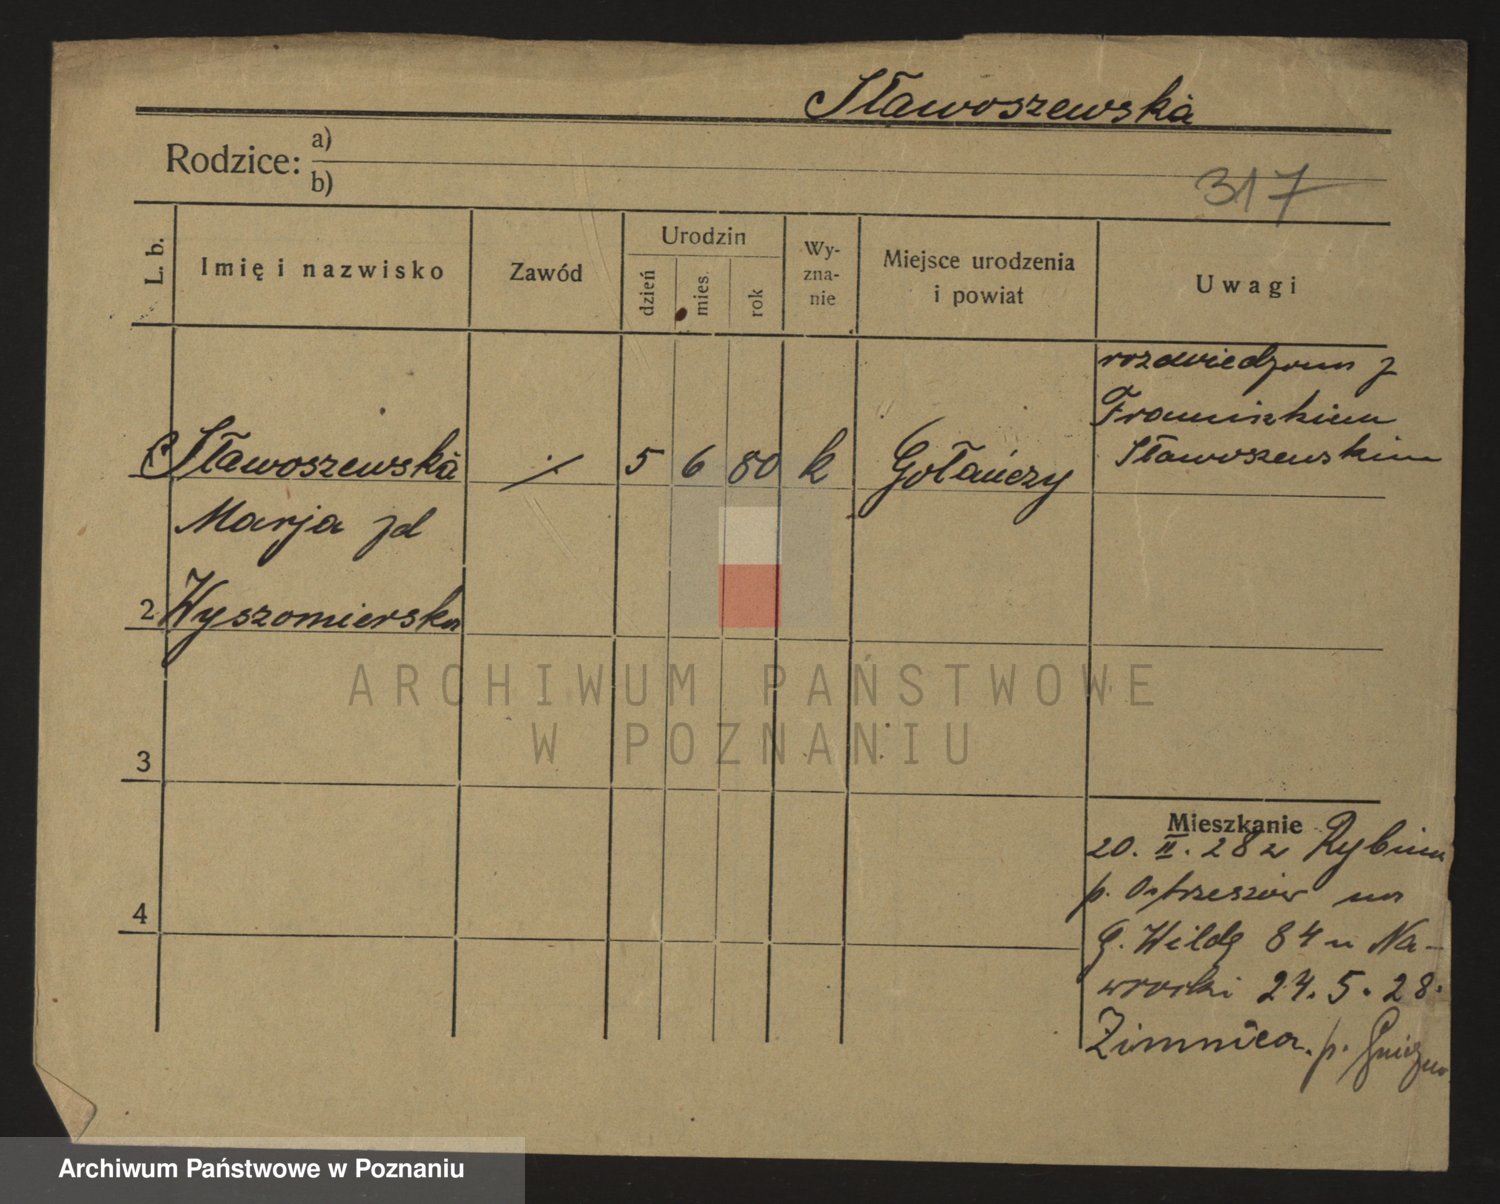 Sławoszewska
Rodzice: a)
b)
317
L. b.
Imię i nazwisko
Zawód
Urodzin
dzień
mies.
rok
Wy-
zna-
nie
Miejsce urodzenia
i powiat
Uwagi
rozwiedziona z
Franciszkiem
Sławoszewskim
Sławoszewska
5 6 80 k Gołańczy
Marja zd
2 Wyszomierska
ARCHIWUM PAŃSTWOWE
W POZNANIU
3
4
Mieszkanie
20. II. 28 z
p. Ostrzeszów na
G. Wildę 84 u Na-
wrocki 24. 5. 28.
Zimnica. p. Gniezno
Archiwum Państwowe w Poznaniu